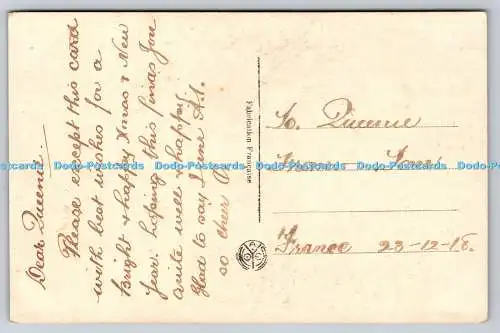 Dear Queenie
Please except this card
with best wishes for a
Bright & happy Xmas & New
Year. hoping this finds you
quite well & happy.
Glad to say I am A.1.
so cheir O
Fabrication Française
To. Queenie
From
France 23-12-18.
Dodo-Postcards Dodo-Postcards Dodo-Postcards Dodo-Postcards Dodo-Postcards